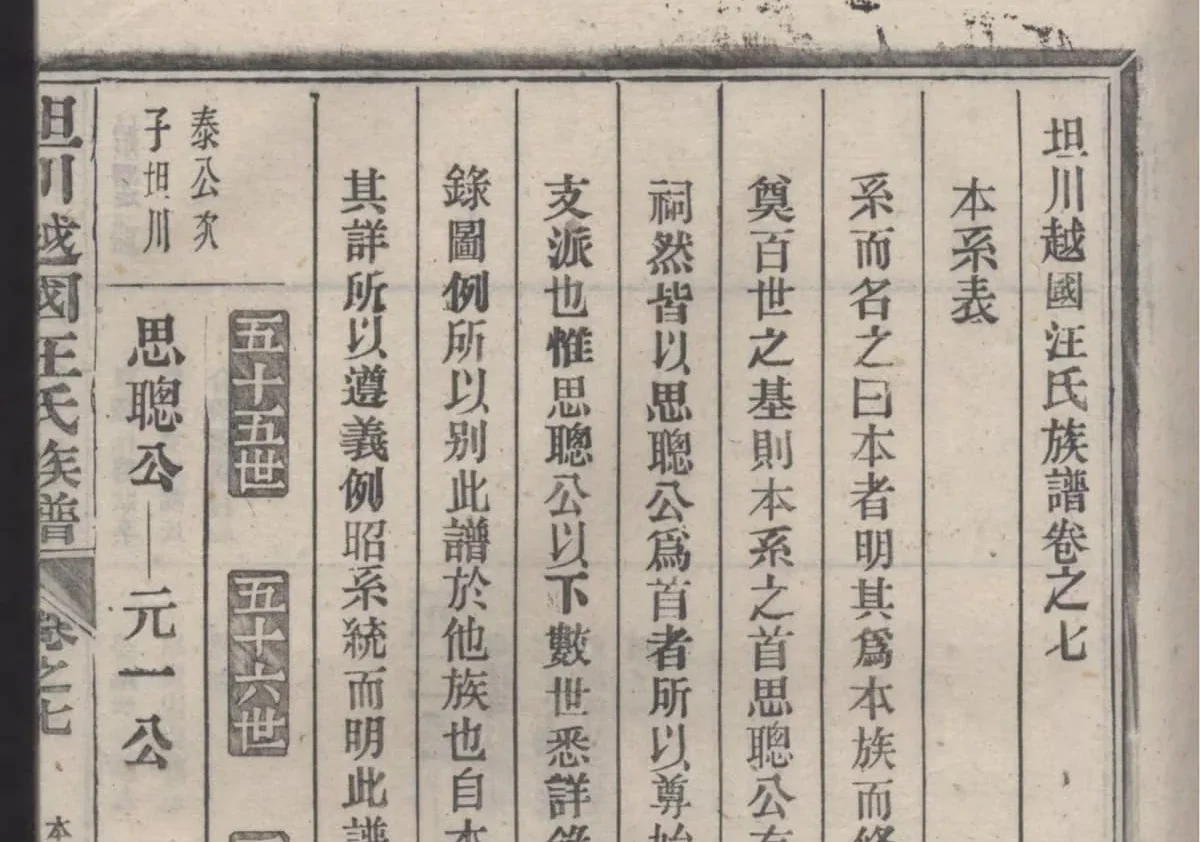 坦川越國汪氏族譜卷之七
本系表
系而名之曰本者明其爲本族而修
奠百世之基則本系之首思聰公
祠然皆以思聰公爲首者所以尊始
支派也惟思聰公以下數世悉詳錄
錄圖例所以别此譜於他族也自本
其詳所以遵義例昭系統而明此譜
五十五世
五十六世
泰公次
子坦川
思聰公
元一公
坦川越國汪氏族譜
卷之七
本